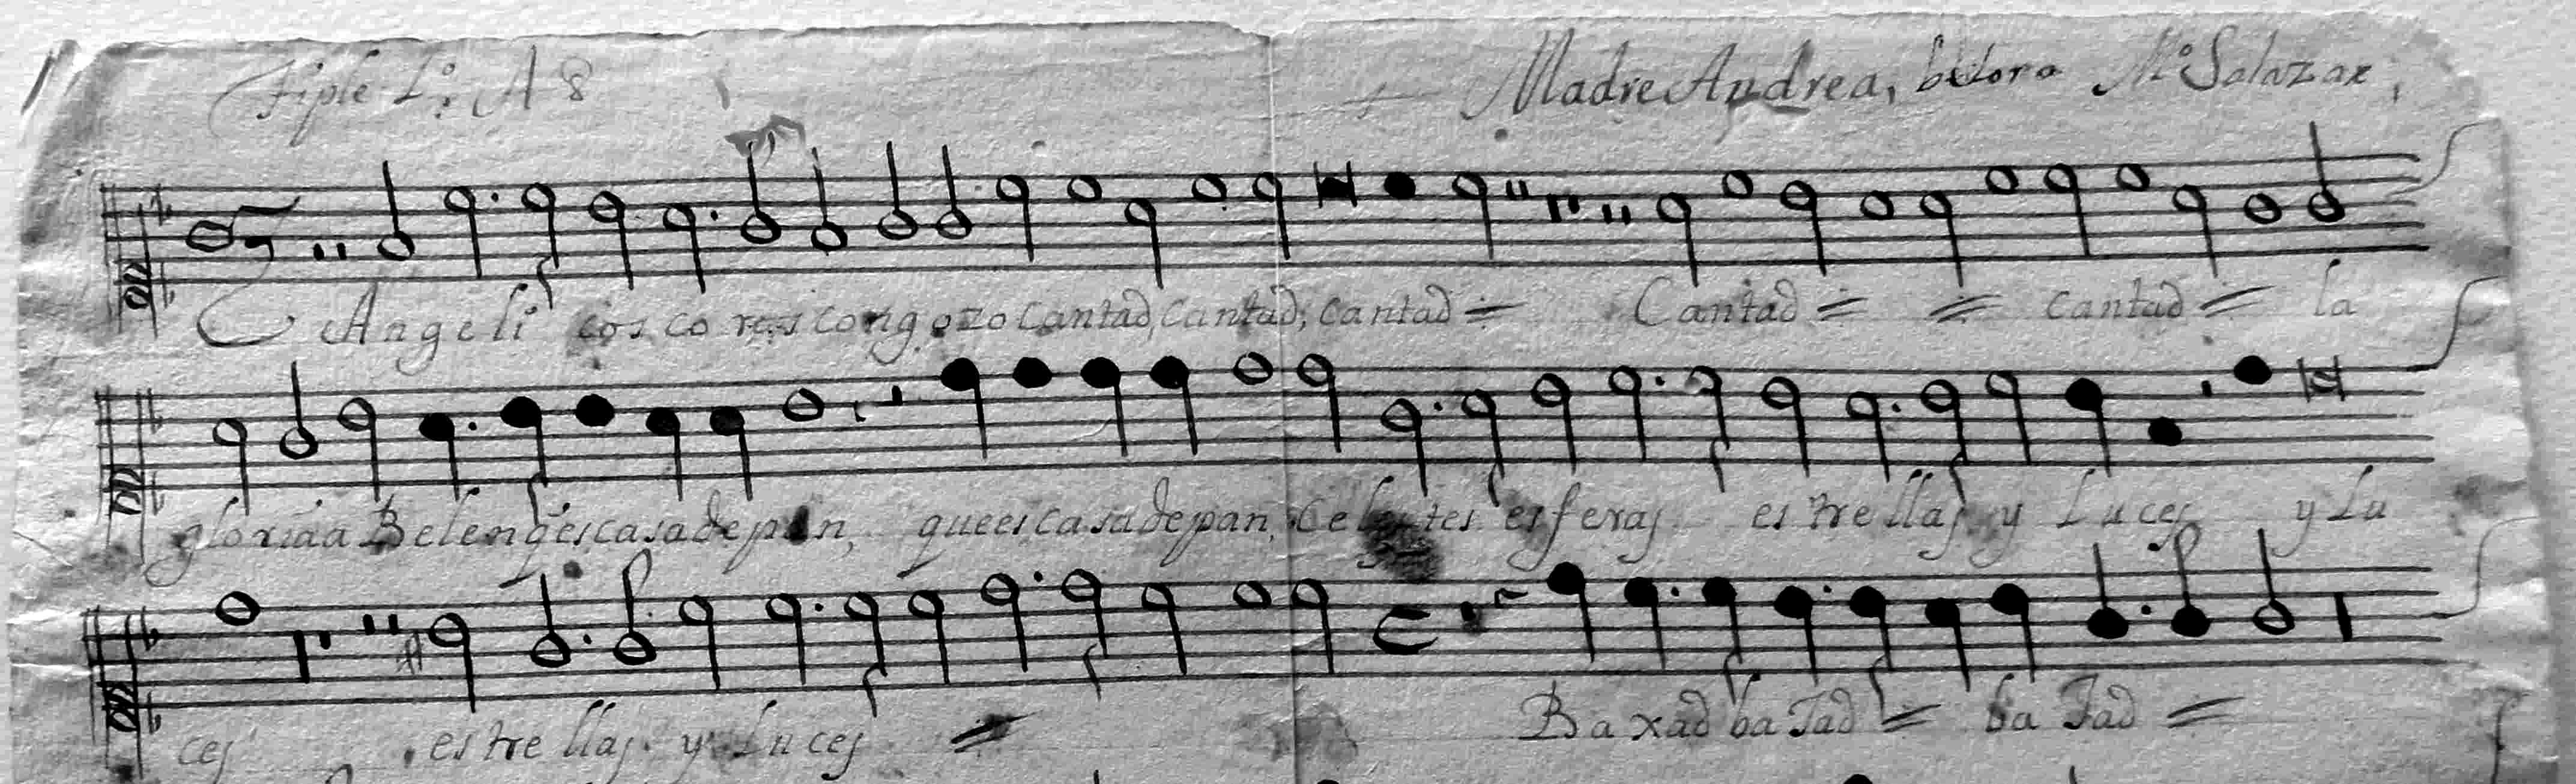 Tiple 1º: A 8 Madre Andrea, Mº Salazar,
Angeli cos co res con gozo Cantad, cantad, cantad = Cantad = = cantad = la
gloria a a Belen q̃ es casa de pan, que es casa de pan, Celestes esferas estrellas y Luces y Lu
ces estrellas y Luces = Baxad baJad = ba Jad =